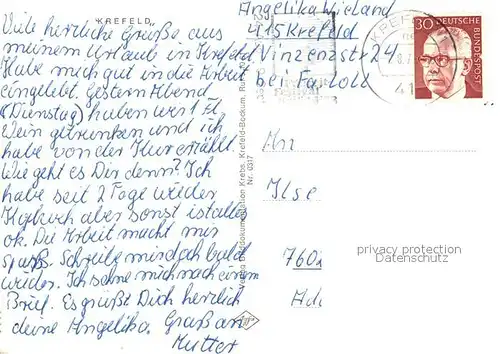 KREFELD
Viele herzliche Grüße aus
meinem Urlaub in Krefeld
Habe mich gut in die Arbeit
eingelebt. Gestern Abend
(Dienstag) haben wir 1 Fl.
Wein getrunken und ich
habe von der Kur erzählt.
Wie geht es Dir denn? Ich
habe seit 2 Tage wieder
Kopfweh aber sonst ist alles
ok. Die Arbeit macht mir
spaß. Schreibe mir doch bald
wieder. Ich sehne mich nach einem
Brief. Es grüßt Dich herzlich
deine Angelika. Gruß an
Mutter
Krebs, Krefeld-Bockum,
Nr. 0317
Angelika Wieland
415 Krefeld
Vinzenzstr 24
bei
30
DEUTSCHE
BUNDESPOST
KREF
41
An
Ilse
760
privacy protection
Datenschutz